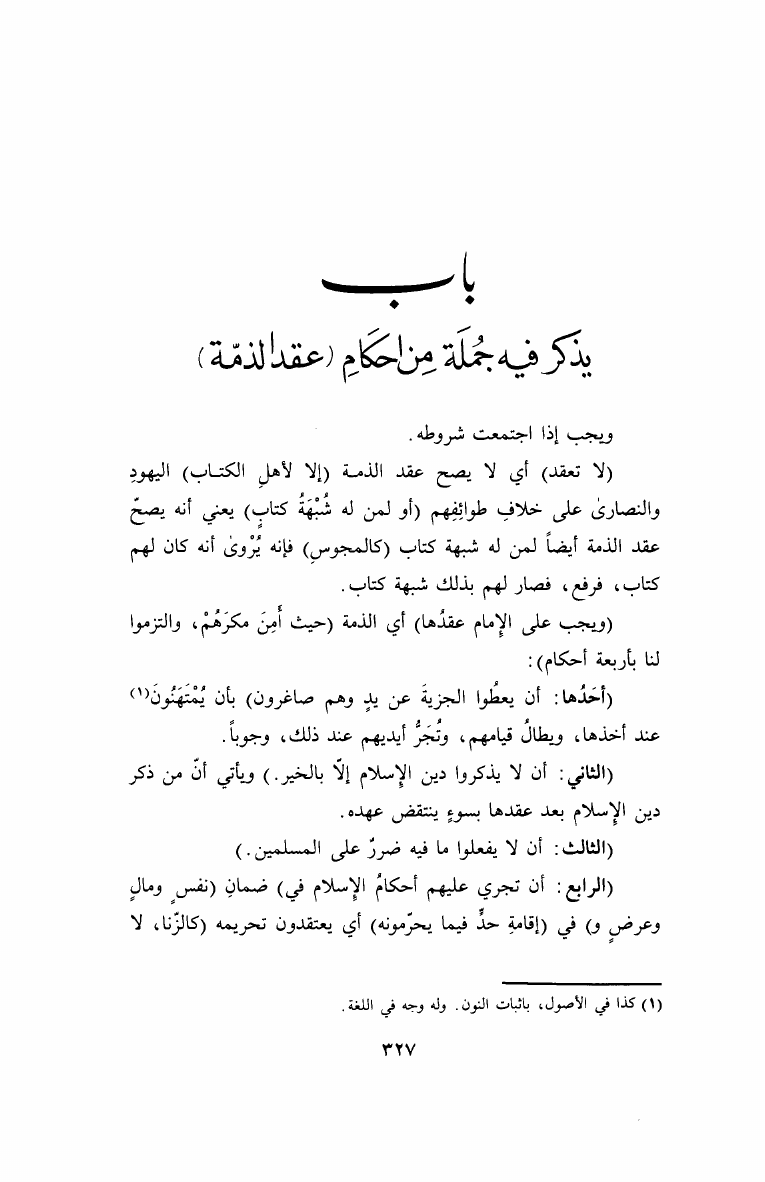 باب
يذكر فيه جُملَة مِن احكَامِ (عقد الذمّة)
ويجب إذا اجتمعت شروطه.
(لا تعقد) أي لا يصح عقد الذمة (إلا لأهلِ الكتاب) اليهودِ
والنصارىٰ على خلافِ طوائِفِهم (أو لمن له شُبْهَةُ كتابٍ) يعني أنه يصحّ
عقد الذمة أيضاً لمن له شبهة كتاب (كالمجوسِ) فإنه يُرْوىٰ أنه كان لهم
كتاب، فرفع، فصار لهم بذلك شبهة كتاب.
(ويجب على الإِمام عقدُها) أي الذمة (حيث أُمِنَ مكرَهُمْ، والتزموا
لنا بأربعة أحكام):
(أحَدُها: أن يعطُوا الجزيةَ عن يدٍ وهم صاغرون) بأن يُمْتَهَنُونَ(١)
عند أخذها، ويطالُ قيامهم، وتُجَرُّ أيديهم عند ذلك، وجوباً.
(الثاني: أن لا يذكروا دين الإِسلام إلّا بالخير.) ويأتي أنّ من ذكر
دين الإِسلام بعد عقدها بسوءٍ ينتقض عهده.
(الثالث: أن لا يفعلوا ما فيه ضررٌ على المسلمين.)
(الرابع: أن تجري عليهم أحكامُ الإِسلام في) ضمانِ (نفسٍ ومالٍ
وعرضٍ و) في (إقامةِ حدٍّ فيما يحرّمونه) أي يعتقدون تحريمه (كالزّنا، لا
(١) كذا في الأصول، باثبات النون. وله وجه في اللغة.
٣٢٧